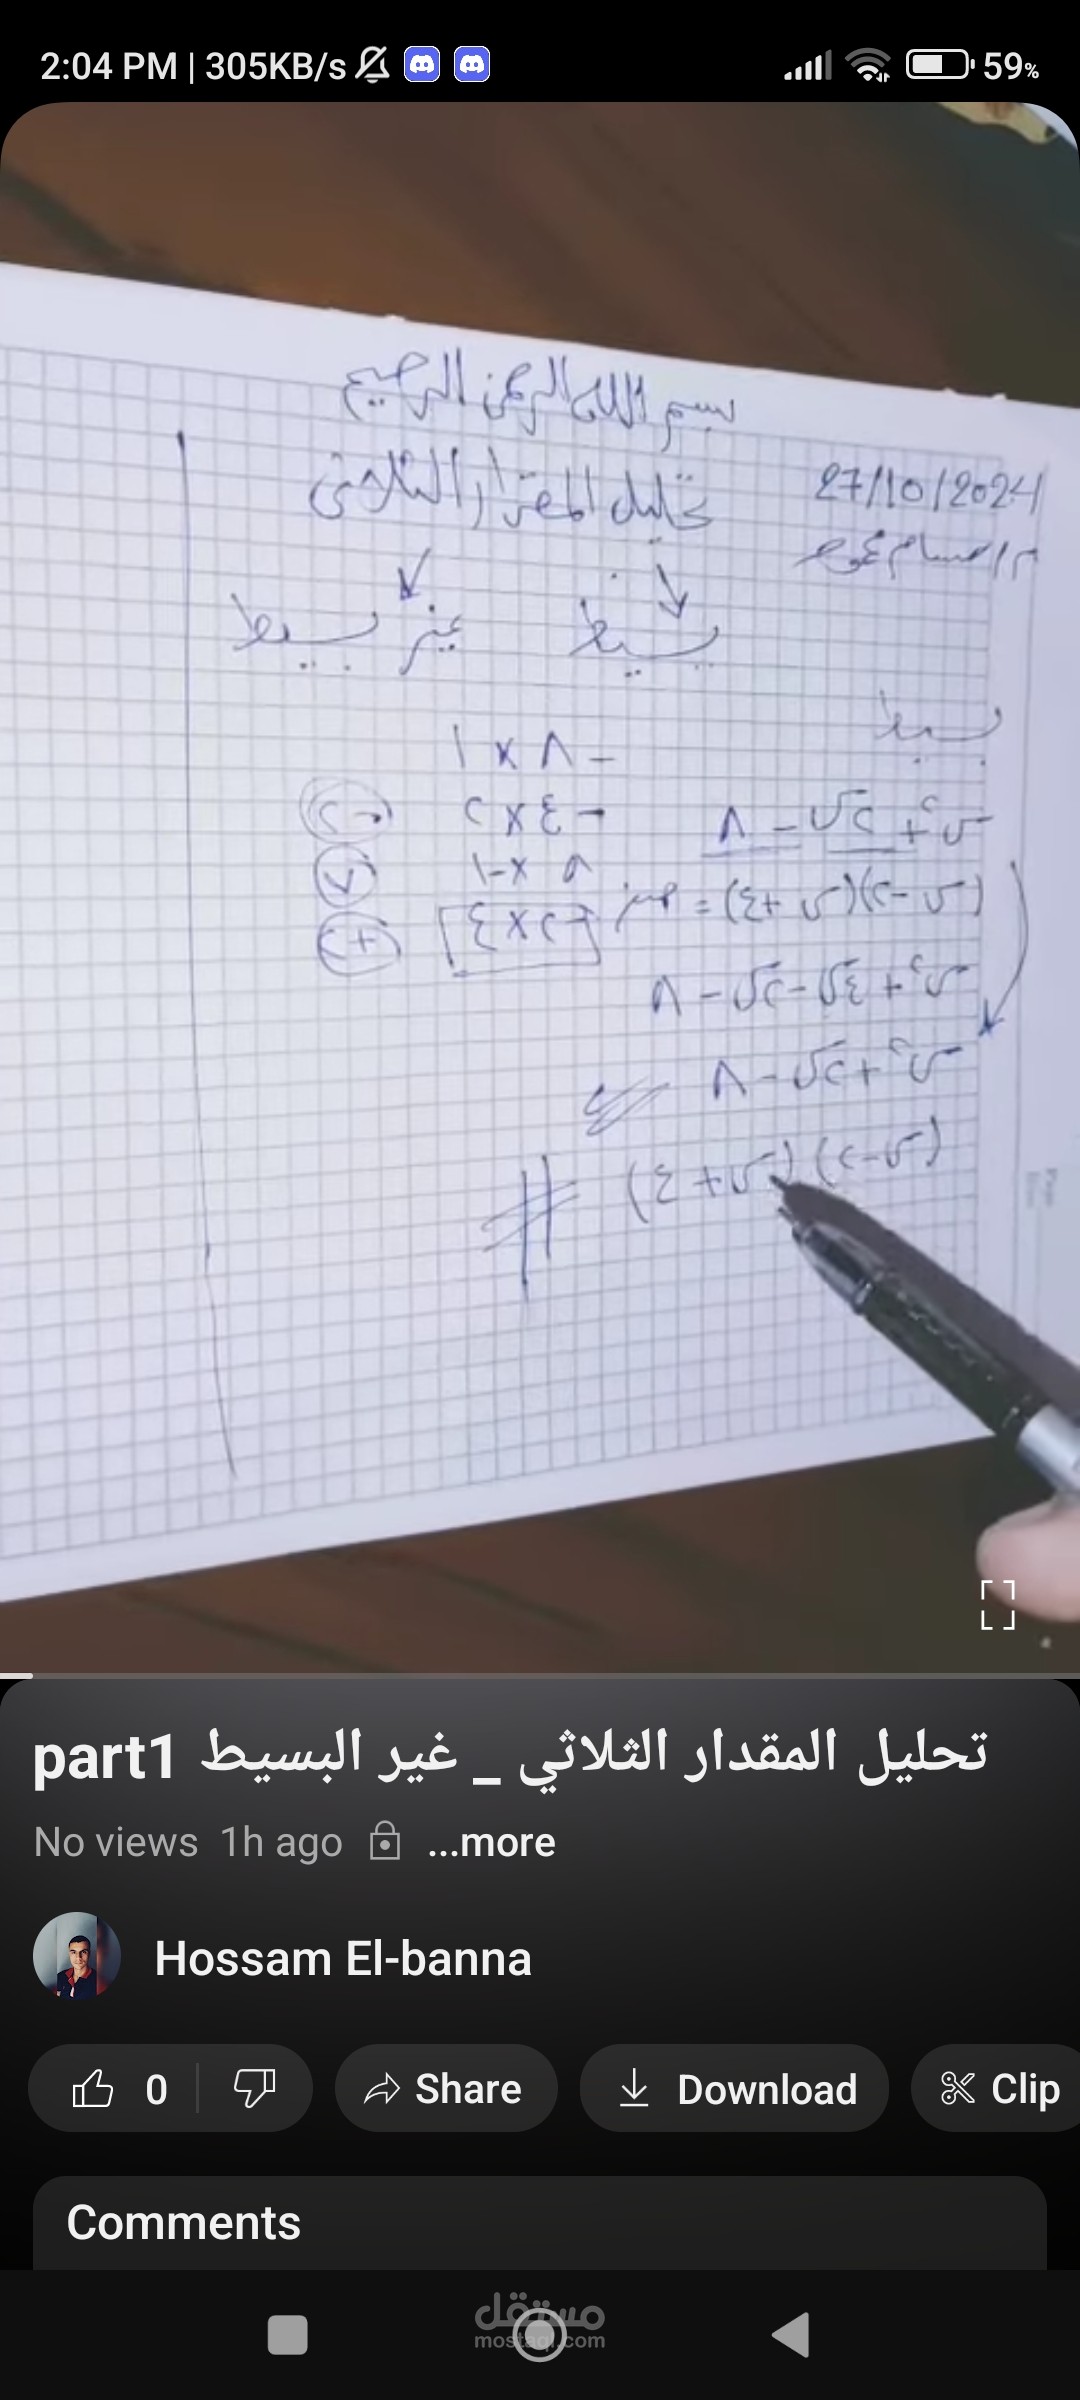 2:04 PM | 305KB/s 59%
بسم الله الرحمن الرحيم
27/10/2024
تحليل المقدار الثلاثى
م/حسام
بسيط
غير بسيط
بسيط
- ٨ × ١
- ٤ × ٢
٨ × -١
-٢ × ٤
(-٢)
(٧)
(+٢)
س٢ + ٢س - ٨
(س - ٢)(س + ٤) =
س٢ + ٤س - ٢س - ٨
س٢ + ٢س - ٨
(س - ٢) (س + ٤)
تحليل المقدار الثلاثي _ غير البسيط part1
No views 1h ago ...more
Hossam El-banna
0 Share Download Clip
Comments
مستقل
mostaql.com